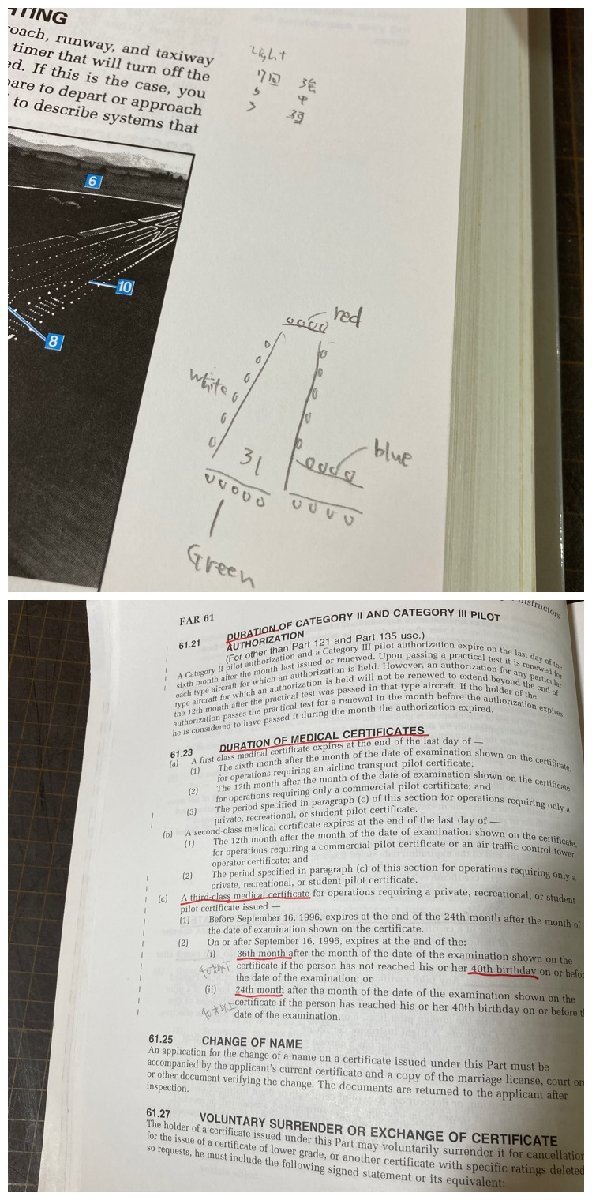 TING
oach, runway, and taxiway
timer that will turn off the
ed. If this is the case, you
are to depart or approach
to describe systems that
6
10
8
Light
7回 3 
5 中
3 
red
white
blue
31
Green
FAR 61
61.21 DURATION OF CATEGORY II AND CATEGORY III PILOT
AUTHORIZATION
(For other than Part 121 and Part 135 use.)
A Category II pilot authorization and a Category III pilot authorization expire on the last day of the
sixth month after the month last issued or renewed. Upon passing a practical test it is renewed for
each type aircraft for which an authorization is held. However, an authorization for any particular
type aircraft for which an authorization is held will not be renewed to extend beyond the end of
the 12th month after the practical test was passed in that type aircraft. If the holder of the
authorization passes the practical test for a renewal in the month before the authorization expires
he is considered to have passed it during the month the authorization expired.
61.23 DURATION OF MEDICAL CERTIFICATES
(a) A first class medical certificate expires at the end of the last day of —
(1) The sixth month after the month of the date of examination shown on the certificate,
for operations requiring an airline transport pilot certificate.
(2) The 12th month after the month of the date of examination shown on the certificate
for operations requiring only a commercial pilot certificate; and
(3) The period specified in paragraph (c) of this section for operations requiring only a
private, recreational, or student pilot certificate.
(b) A second-class medical certificate expires at the end of the last day of —
(1) The 12th month after the month of the date of examination shown on the certificate,
for operations requiring a commercial pilot certificate or an air traffic control tower
operator certificate; and
(2) The period specified in paragraph (c) of this section for operations requiring only a
private, recreational, or student pilot certificate.
(c) A third-class medical certificate for operations requiring a private, recreational, or student
pilot certificate issued —
(1) Before September 16, 1996, expires at the end of the 24th month after the month of
the date of examination shown on the certificate.
(2) On or after September 16, 1996, expires at the end of the:
(i) 36th month after the month of the date of the examination shown on the
certificate if the person has not reached his or her 40th birthday on or befo
the date of the examination; or
(ii) 24th month after the month of the date of the examination shown on the
certificate if the person has reached his or her 40th birthday on or before t
date of the examination.
61.25 CHANGE OF NAME
An application for the change of a name on a certificate issued under this Part must be
accompanied by the applicant's current certificate and a copy of the marriage license, court or
or other document verifying the change. The documents are returned to the applicant after
inspection.
61.27 VOLUNTARY SURRENDER OR EXCHANGE OF CERTIFICATE
The holder of a certificate issued under this Part may voluntarily surrender it for cancellation
for the issue of a certificate of lower grade, or another certificate with specific ratings deleted
so requests, he must include the following signed statement or its equivalent: